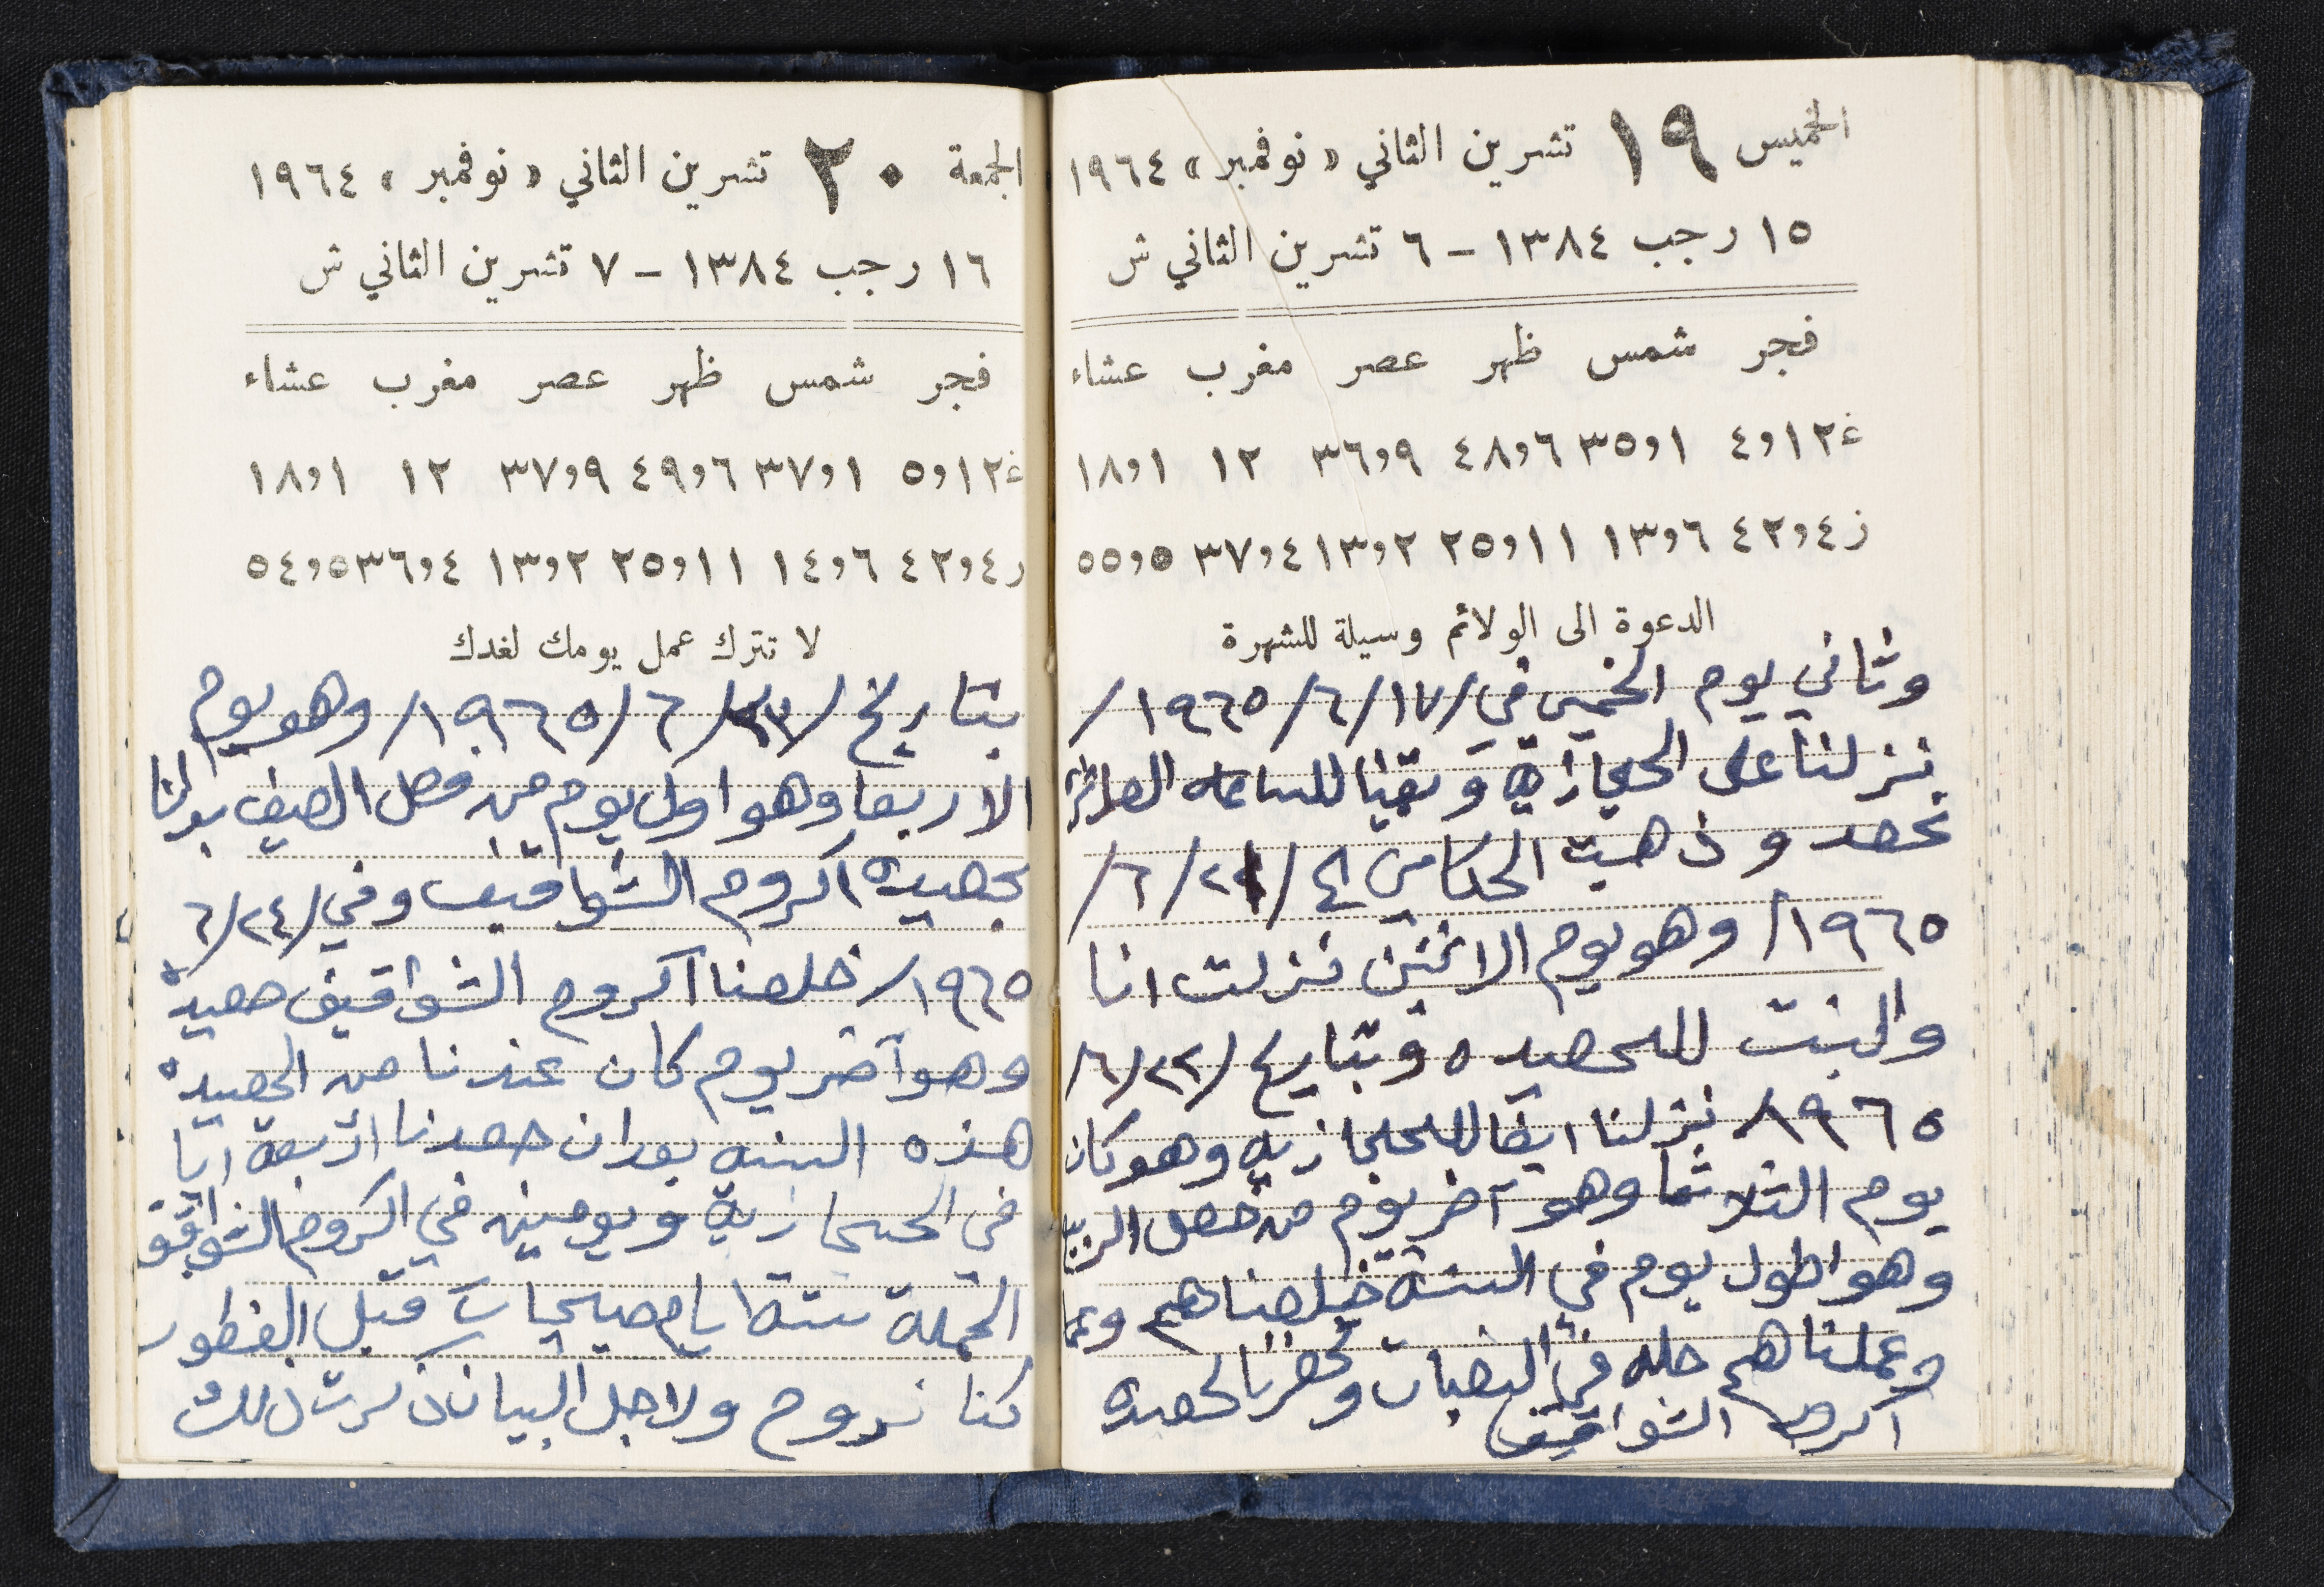 الخميس ١٩ تشرين الثاني « نوفمبر » ١٩٦٤
١٥ رجب ١٣٨٤ – ٦ تشرين الثاني ش
فجر شمس ظهر عصر مغرب عشاء
غ ١٢و٤ ١و٣٥ ٦و٤٨ ٩و٣٦ ١٢ ١و١٨
ز ٤و٤٢ ٦و١٣ ١١و٢٥ ٢و١٣ ٤و٣٧ ٥و٥٥
الدعوة الى الولائم وسيلة للشهرة
وثاني يوم الخميس في /١٧/ ٦/ ١٩٦٥/
نزلنا على الحجازية وبقينا للساعه
نحصد وذهبت الحكا من /٢١/ ٦/
١٩٦٥/ وهو يوم الاثنين نزلت انا
والبنت للحصده وبتاريخ /٢٢/ ٦/
١٩٦٥/ نزلنا ايضا للحجازيه وهو كان
يوم الثلاثا وهو آخر يوم من فصل
وهو اطول يوم في السنة خلصناهم
وعملناهم حله في وحضرنا لحصده
اكروم الشواقيف
الجمعة ٢٠ تشرين الثاني « نوفمبر » ١٩٦٤
١٦ رجب ١٣٨٤ – ٧ تشرين الثاني ش
فجر شمس ظهر عصر مغرب عشاء
غ ١٢و٥ ١و٣٧ ٦و٤٩ ٩و٣٧ ١٢ ١و١٨
ز ٤و٤٢ ٦و١٤ ١١و٢٥ ٢و١٣ ٤و٣٦ ٥و٥٤
لا تترك عمل يومك لغدك
بتاريخ /٢٣/ ٦/ ١٩٦٥/ وهو يوم
الاربعا وهو اول يوم من فصل الصيف بدلنا
بحصيدة اكروم الشواقيف وفي /٢٤/ ٦
١٩٦٥/ خلصنا اكروم الشواقيف حصيدة
وهو آخر يوم كان عندنا من الحصيدة
هذه السنه بعد ان حصدنا اربعة ايا
في الحجازية ويومين في اكروم الشواقيف
الجملة ستة ايام صبحيات قبل الفطور
كنا نروح ولاجل البيان ذكرت ذلك